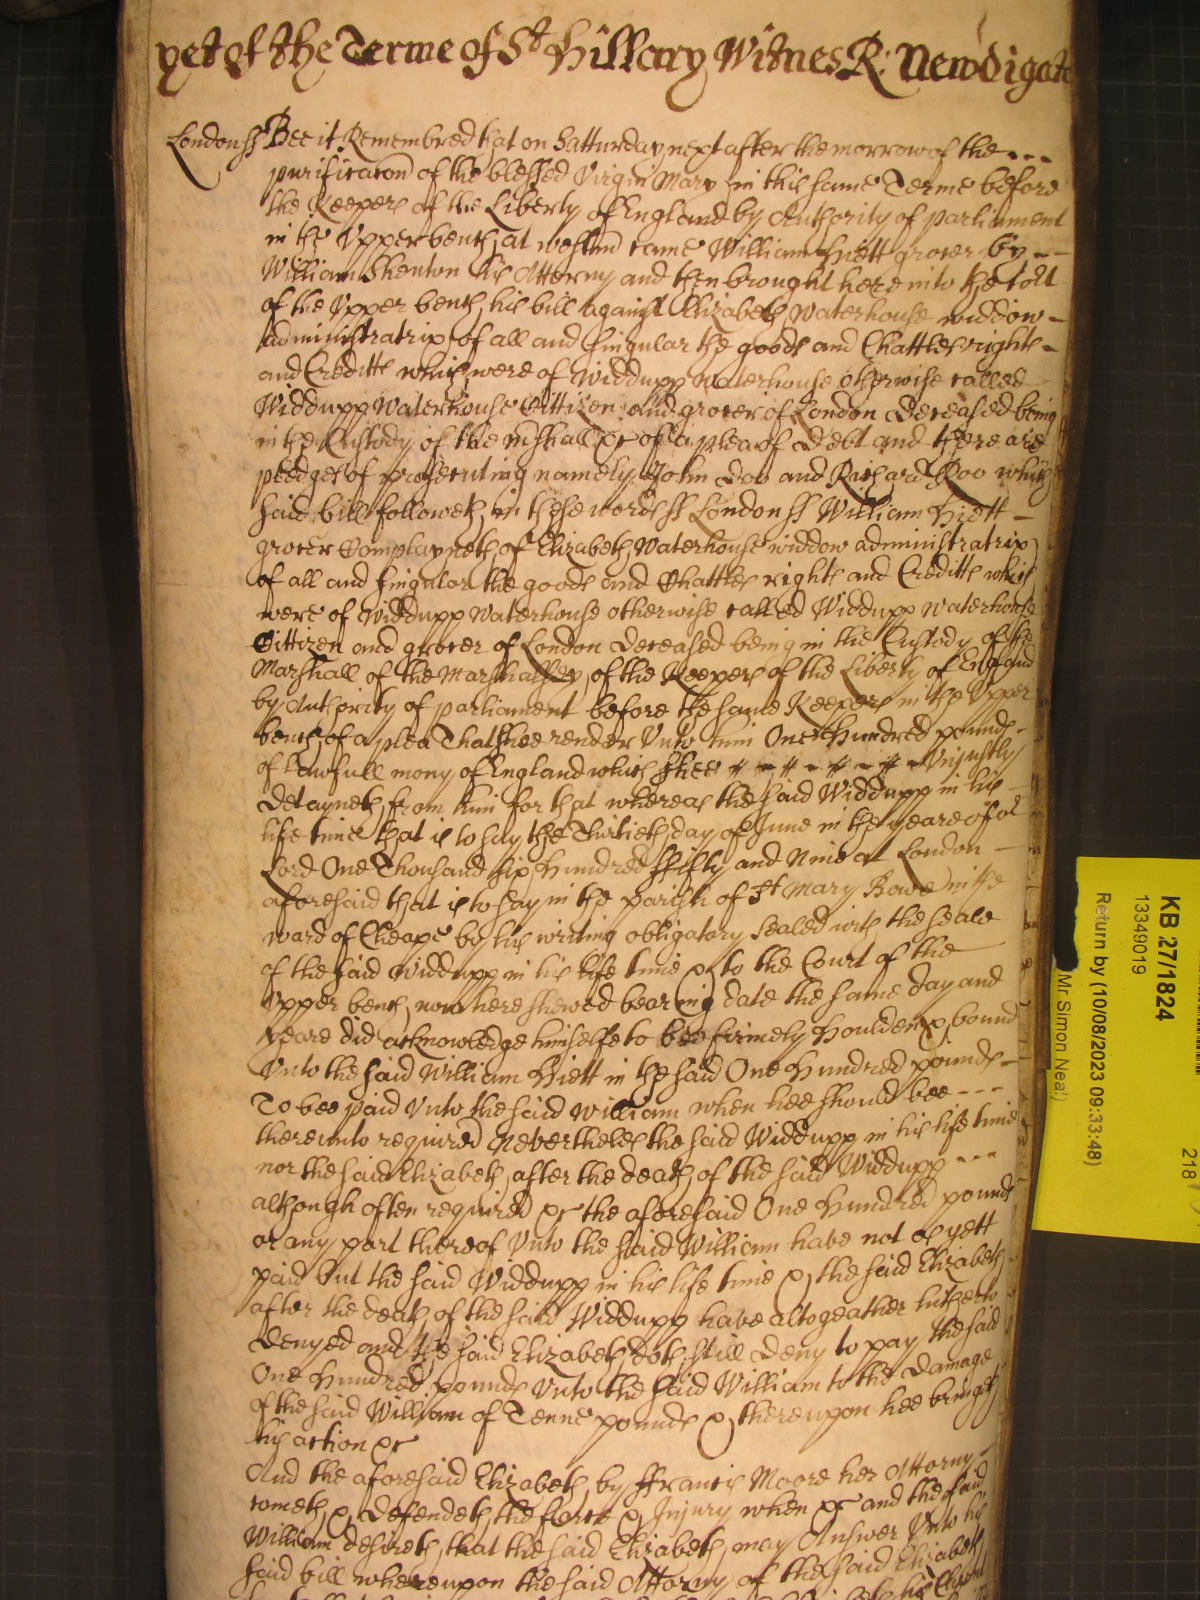 yet of the Terme of St Hillary Witnes R: Newdigate
London ss Bee it Remembred that on Satturday next after the morrow of the
purificacon of the blessed Virgin Mary in this same Terme before
the Keepers of the Liberty of England by Authority of parliament
in the Upper bench at westm came William Hiett grocer by
William Shenton his Attorny and then brought here into the Cort
of the Upper bench his bill against Elizabeth Waterhouse widdow
administratrix of all and singular the goods and Chattles rights
and Creditts which were of Widdupp Waterhouse otherwise called
Widdupp Waterhouse Cittizen and grocer of London Deceased being
in the Custody of the mshall &c of a plea of Debt and there are
pledges of prosecuting namely John Doo and Richard Roo which
said bill followeth in these words ss London ss William Hiett
grocer Complayneth of Elizabeth Waterhouse widdow administratrix
of all and singular the goods and Chattles rights and Creditts which
were of Widdupp Waterhouse otherwise called Widdupp Waterhouse
Cittizen and grocer of London Deceased being in the Custody of the
Marshall of the Marshalsey of the Keepers of the Liberty of England
by Authority of parliament before the same Keepers in the Upper
bench of a plea That shee render Unto him One Hundred pounds
of Lawfull mony of England which shee Unjustly
Detayneth from him for that whereas the said Widdupp in his
life time that is to say the Thirtieth day of June in the yeare of or
Lord One Thousand six Hundred ffifty and Nine at London
aforesaid that is to say in the parish of St Mary Bowe in the
ward of Cheape by his writing obligatory sealed with the seale
of the said Widdupp in his life time & to the Court of the
Upper bench now here shewed bearing date the same day and
yeare did acknowledge himselfe to bee firmely Houlden & bound
Unto the said William Hiett in the said One Hundred pounds
To bee paid Unto the said William when hee should bee
thereunto required Neverthelés the said Widdupp in his life time
nor the said Elizabeth after the death of the said Widdupp
although often required &c the aforesaid One Hundred pounds
or any part thereof Unto the said William have not as yett
paid but the said Widdupp in his life time & the said Elizabeth
after the death of the said Widdupp have altogeather hitherto
denyed and the said Elizabeth doth still Deny to pay the said
One Hundred pounds Unto the said William to the Damage
of the said William of Tenne pounds & thereupon hee bringeth
his action &c
And the aforesaid Elizabeth by ffrancis Moore her Attorny
cometh & defendeth the force & Injury when &c and the said
William desireth that the said Elizabeth may Answer Unto his
said bill whereupon the said Attorny of the said Elizabeth
KB 27/1824
13349019
Return by (10/08/2023 09:33:48)
Mr Simon Neal)
218